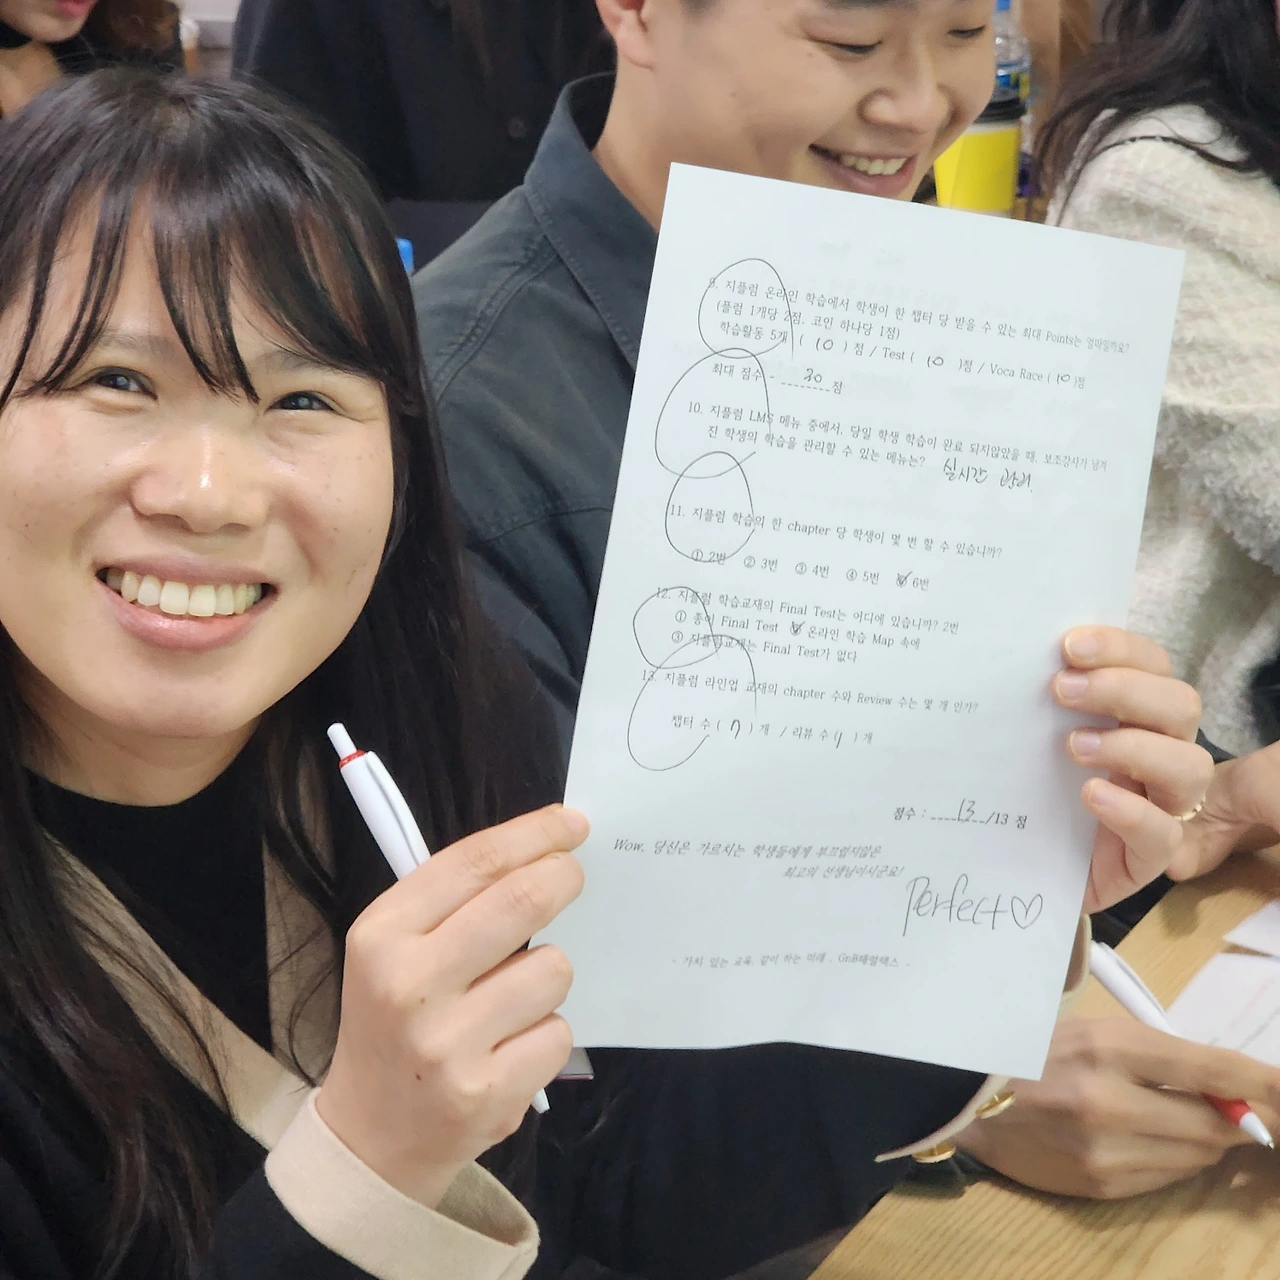 9. 지플럼 온라인 학습에서 학생이 한 챕터 당 받을 수 있는 최대 Points는 얼마일까요?
(플럼 1개당 2점, 코인 하나당 1점)
학습활동 5개 ( 10 ) 점 / Test ( 10 )점 / Voca Race ( 10 )점
최대 점수 - 30 점
10. 지플럼 LMS 메뉴 중에서, 당일 학생 학습이 완료 되지않았을 때, 보조강사가 남겨
진 학생의 학습을 관리할 수 있는 메뉴는? 실시간 관리
11. 지플럼 학습의 한 chapter 당 학생이 몇 번 할 수 있습니까?
① 2번 ② 3번 ③ 4번 ④ 5번 ✓ 6번
12. 지플럼 학습교재의 Final Test는 어디에 있습니까? 2번
① 종이 Final Test ✓ 온라인 학습 Map 속에
③ 지플럼교재는 Final Test가 없다
13. 지플럼 라인업 교재의 chapter 수와 Review 수는 몇 개 인가?
챕터 수 ( 7 ) 개 / 리뷰 수 ( 1 ) 개
점수 : 13 /13 점
Wow, 당신은 가르치는 학생들에게 부끄럽지않은
최고의 선생님이시군요!
Perfect♡
- 가치 있는 교육, 같이 하는 미래 . GnB패럴랙스 -